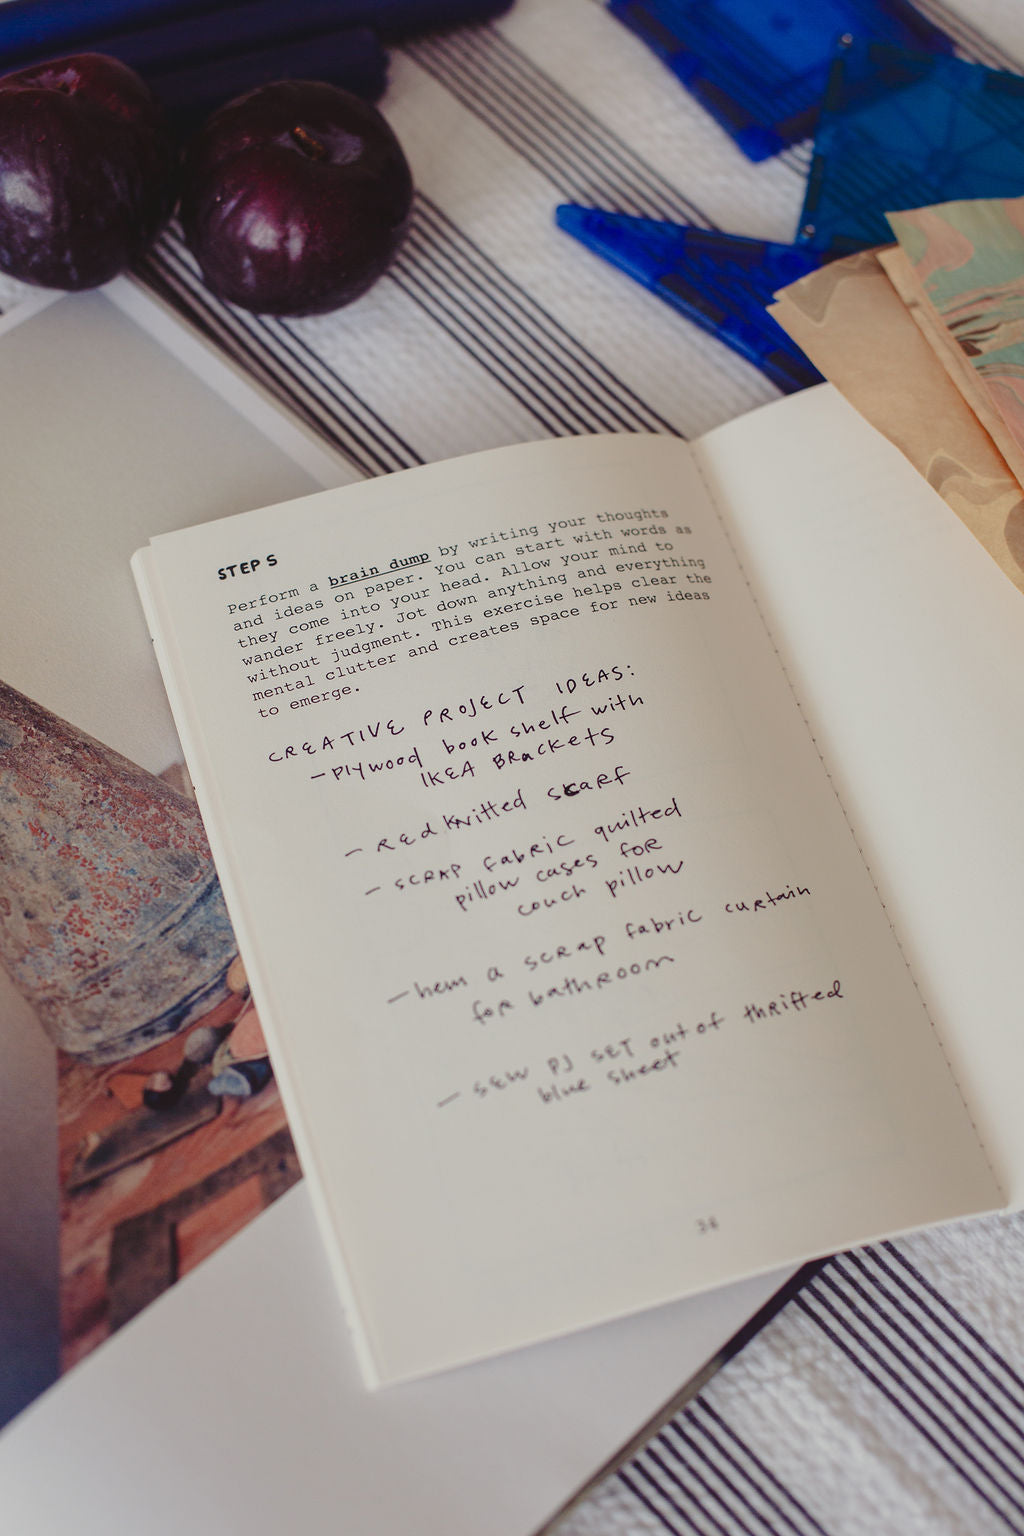 STEP 5
Perform a brain dump by writing your thoughts
and ideas on paper. You can start with words as
they come into your head. Allow your mind to
wander freely. Jot down anything and everything
without judgment. This exercise helps clear the
mental clutter and creates space for new ideas
to emerge.
CREATIVE PROJECT IDEAS:
- Plywood book shelf with
IKEA BRackets
- Red knitted scarf
- SCRAP fabric quilted
pillow cases for
couch pillow
- hem a scrap fabric curtain
for bathroom
- sew PJ SET out of thrifted
blue sheet